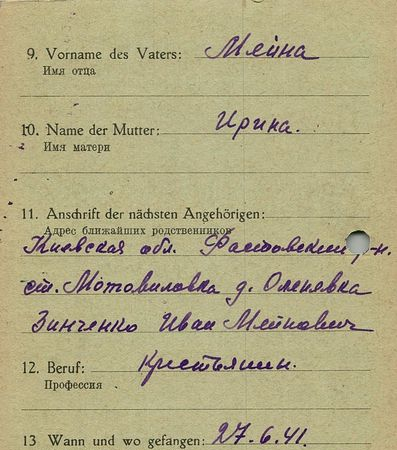 9. Vorname des Vaters: Мейна
Имя отца
10. Name der Mutter: Ирина.
Имя матери
11. Anschrift der nächsten Angehörigen:
Адрес ближайших родственников
Киевская обл. Фастовский р-н.
ст. Мотовиловка д. Оленевка
Зинченко Иван Мейнович
12. Beruf: Крестьянин.
Профессия
13 Wann und wo gefangen: 27.6.41.